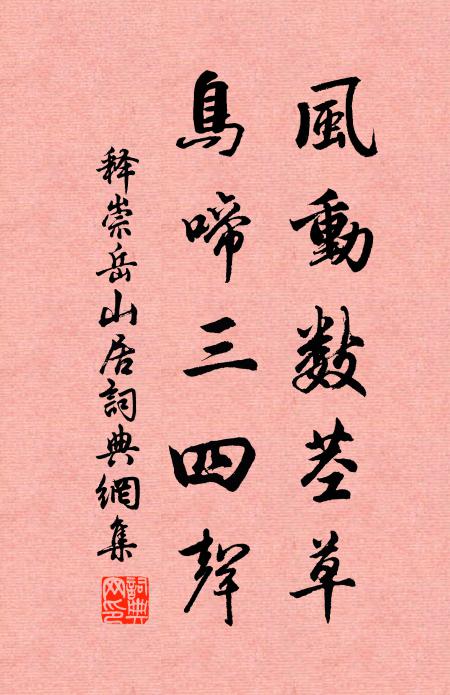 風動數莖草
鳥啼三四聲
释崇岳山居詞典網集
詞典网印